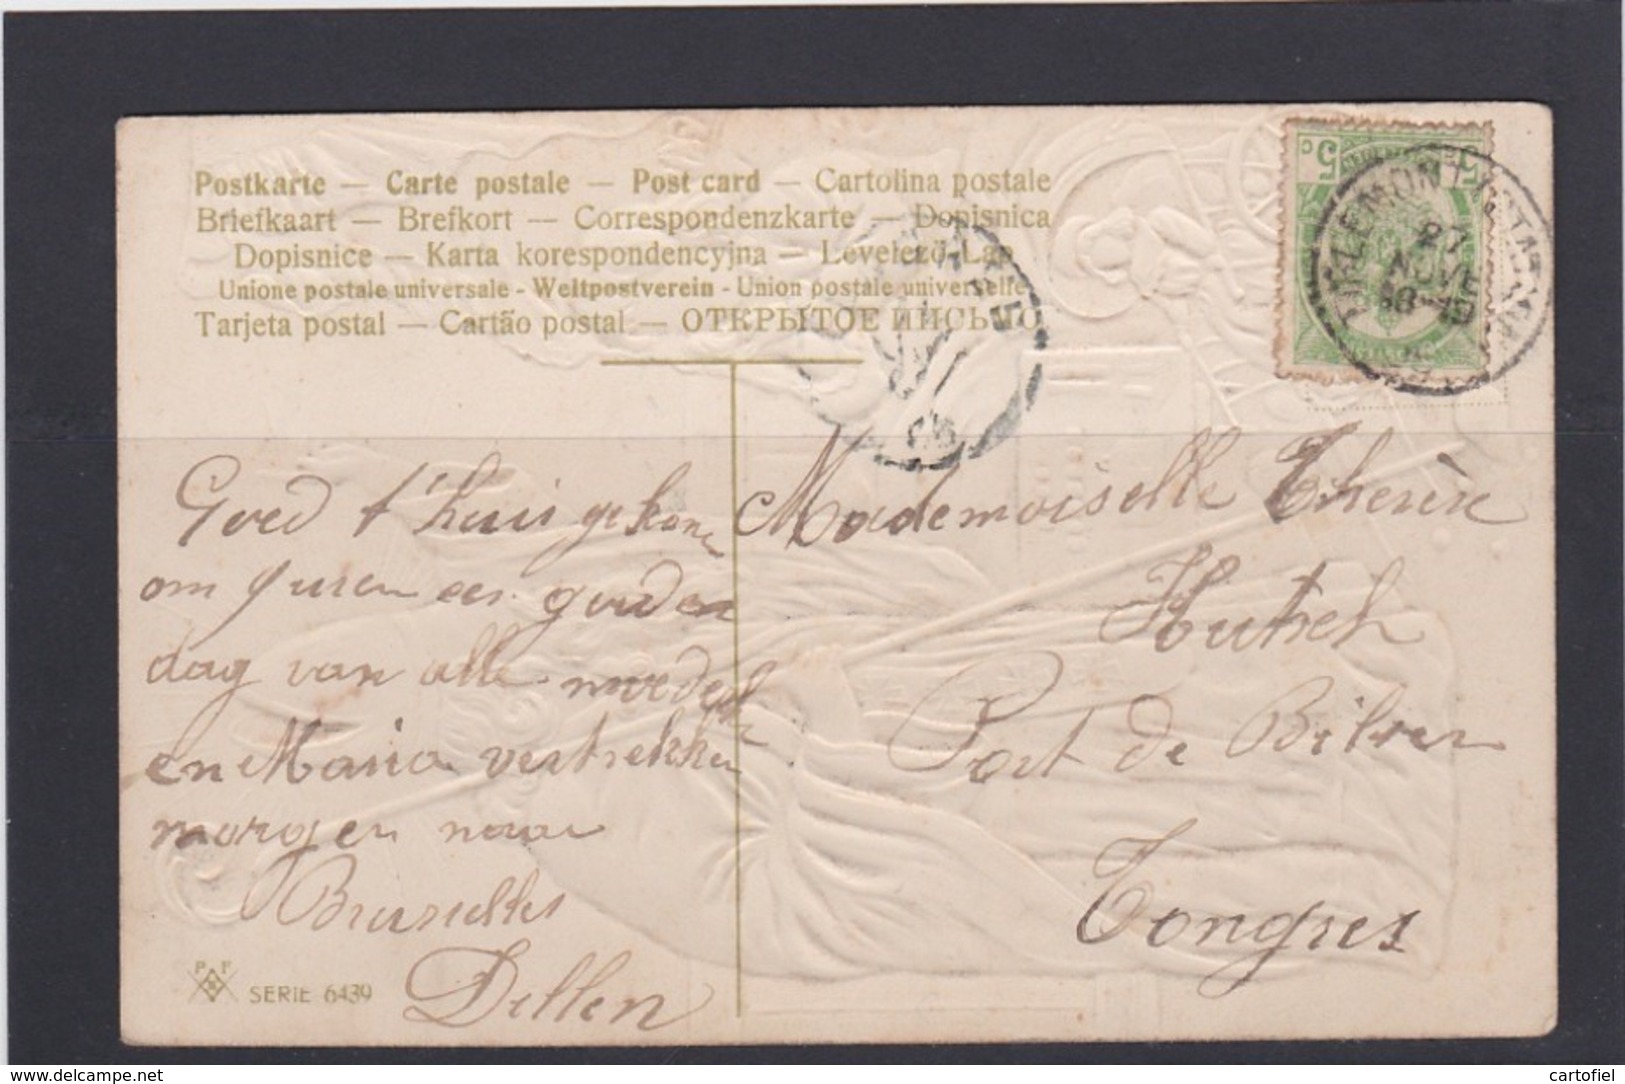 Postkarte — Carte postale — Post card — Cartolina postale
Briefkaart — Brefkort — Correspondenzkarte — Dopisnica
Dopisnice — Karta korespondencyjna — Levelező-Lap
Unione postale universale - Weltpostverein - Union postale universelle
Tarjeta postal — Cartão postal — ОТКРЫТОЕ ПИСЬМО
5 c
TIRLEMONT
27
NOVE
18-19
Goed t'huis gekome
om 9 uren een goeden
dag van alle
en Maria vertrekken
morgen naar
Bruxelles
Dillen
Mademoiselle Therèse
Hutsch
Port de Bilsen
Tongres
P F
B
SERIE 6439
delcampe.net
cartofiel